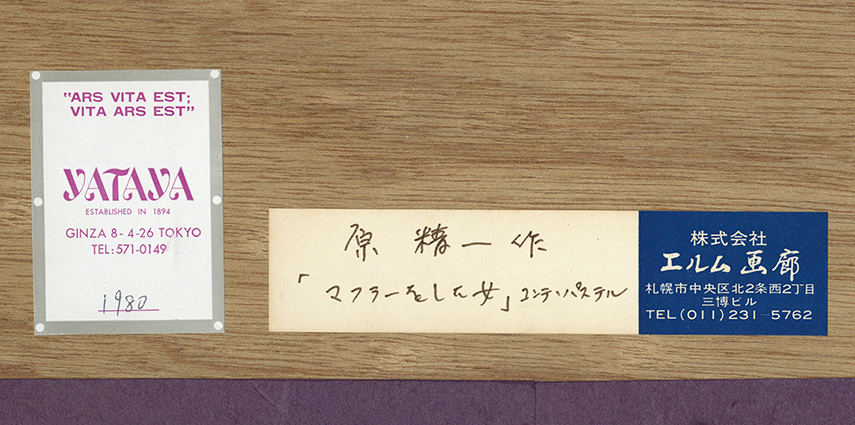 "ARS VITA EST;
VITA ARS EST"
YATAYA
ESTABLISHED IN 1894
GINZA 8-4-26 TOKYO
TEL:571-0149
1980
原 精一 作
「マフラーをした女」コンテ・パステル
株式会社
エルム画廊
札幌市中央区北2条西2丁目
三博ビル
TEL(011)231-5762